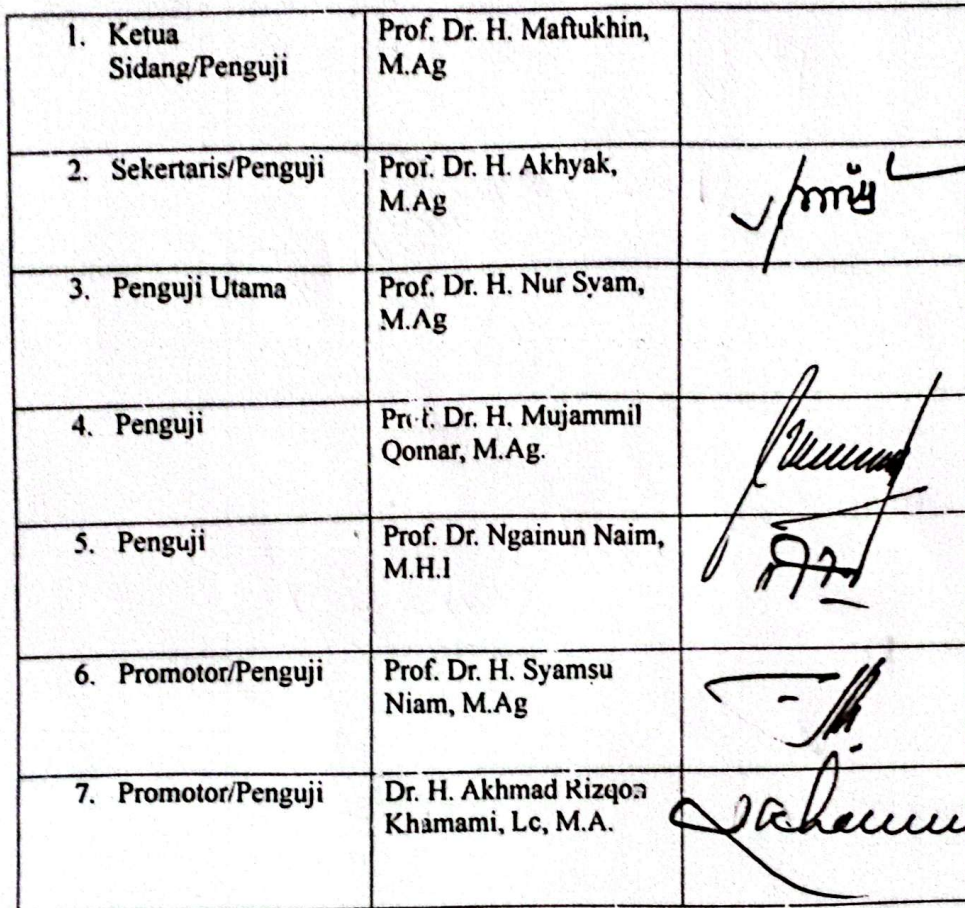 1. Ketua
Sidang/Penguji
Prof. Dr. H. Maftukhin,
M.Ag
2. Sekertaris/Penguji
Prof. Dr. H. Akhyak,
M.Ag
3. Penguji Utama
Prof. Dr. H. Nur Syam,
M.Ag
4. Penguji
Prof. Dr. H. Mujammil
Qomar, M.Ag.
5. Penguji
Prof. Dr. Ngainun Naim,
M.H.I
6. Promotor/Penguji
Prof. Dr. H. Syamsu
Niam, M.Ag
7. Promotor/Penguji
Dr. H. Akhmad Rizqon
Khamami, Lc, M.A.